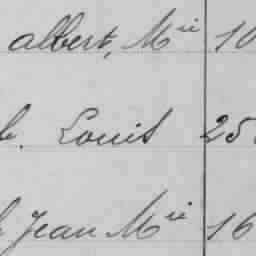 albert, Mie 10
Louis 25
Jean Mie 16